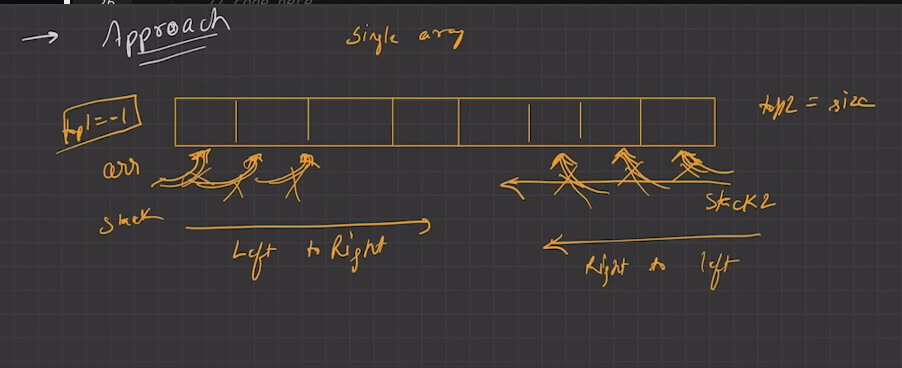 // code here
→ Approach
Single array
top1=-1
top2 = size
arr
Stack
Stack2
Left to Right
Right to left